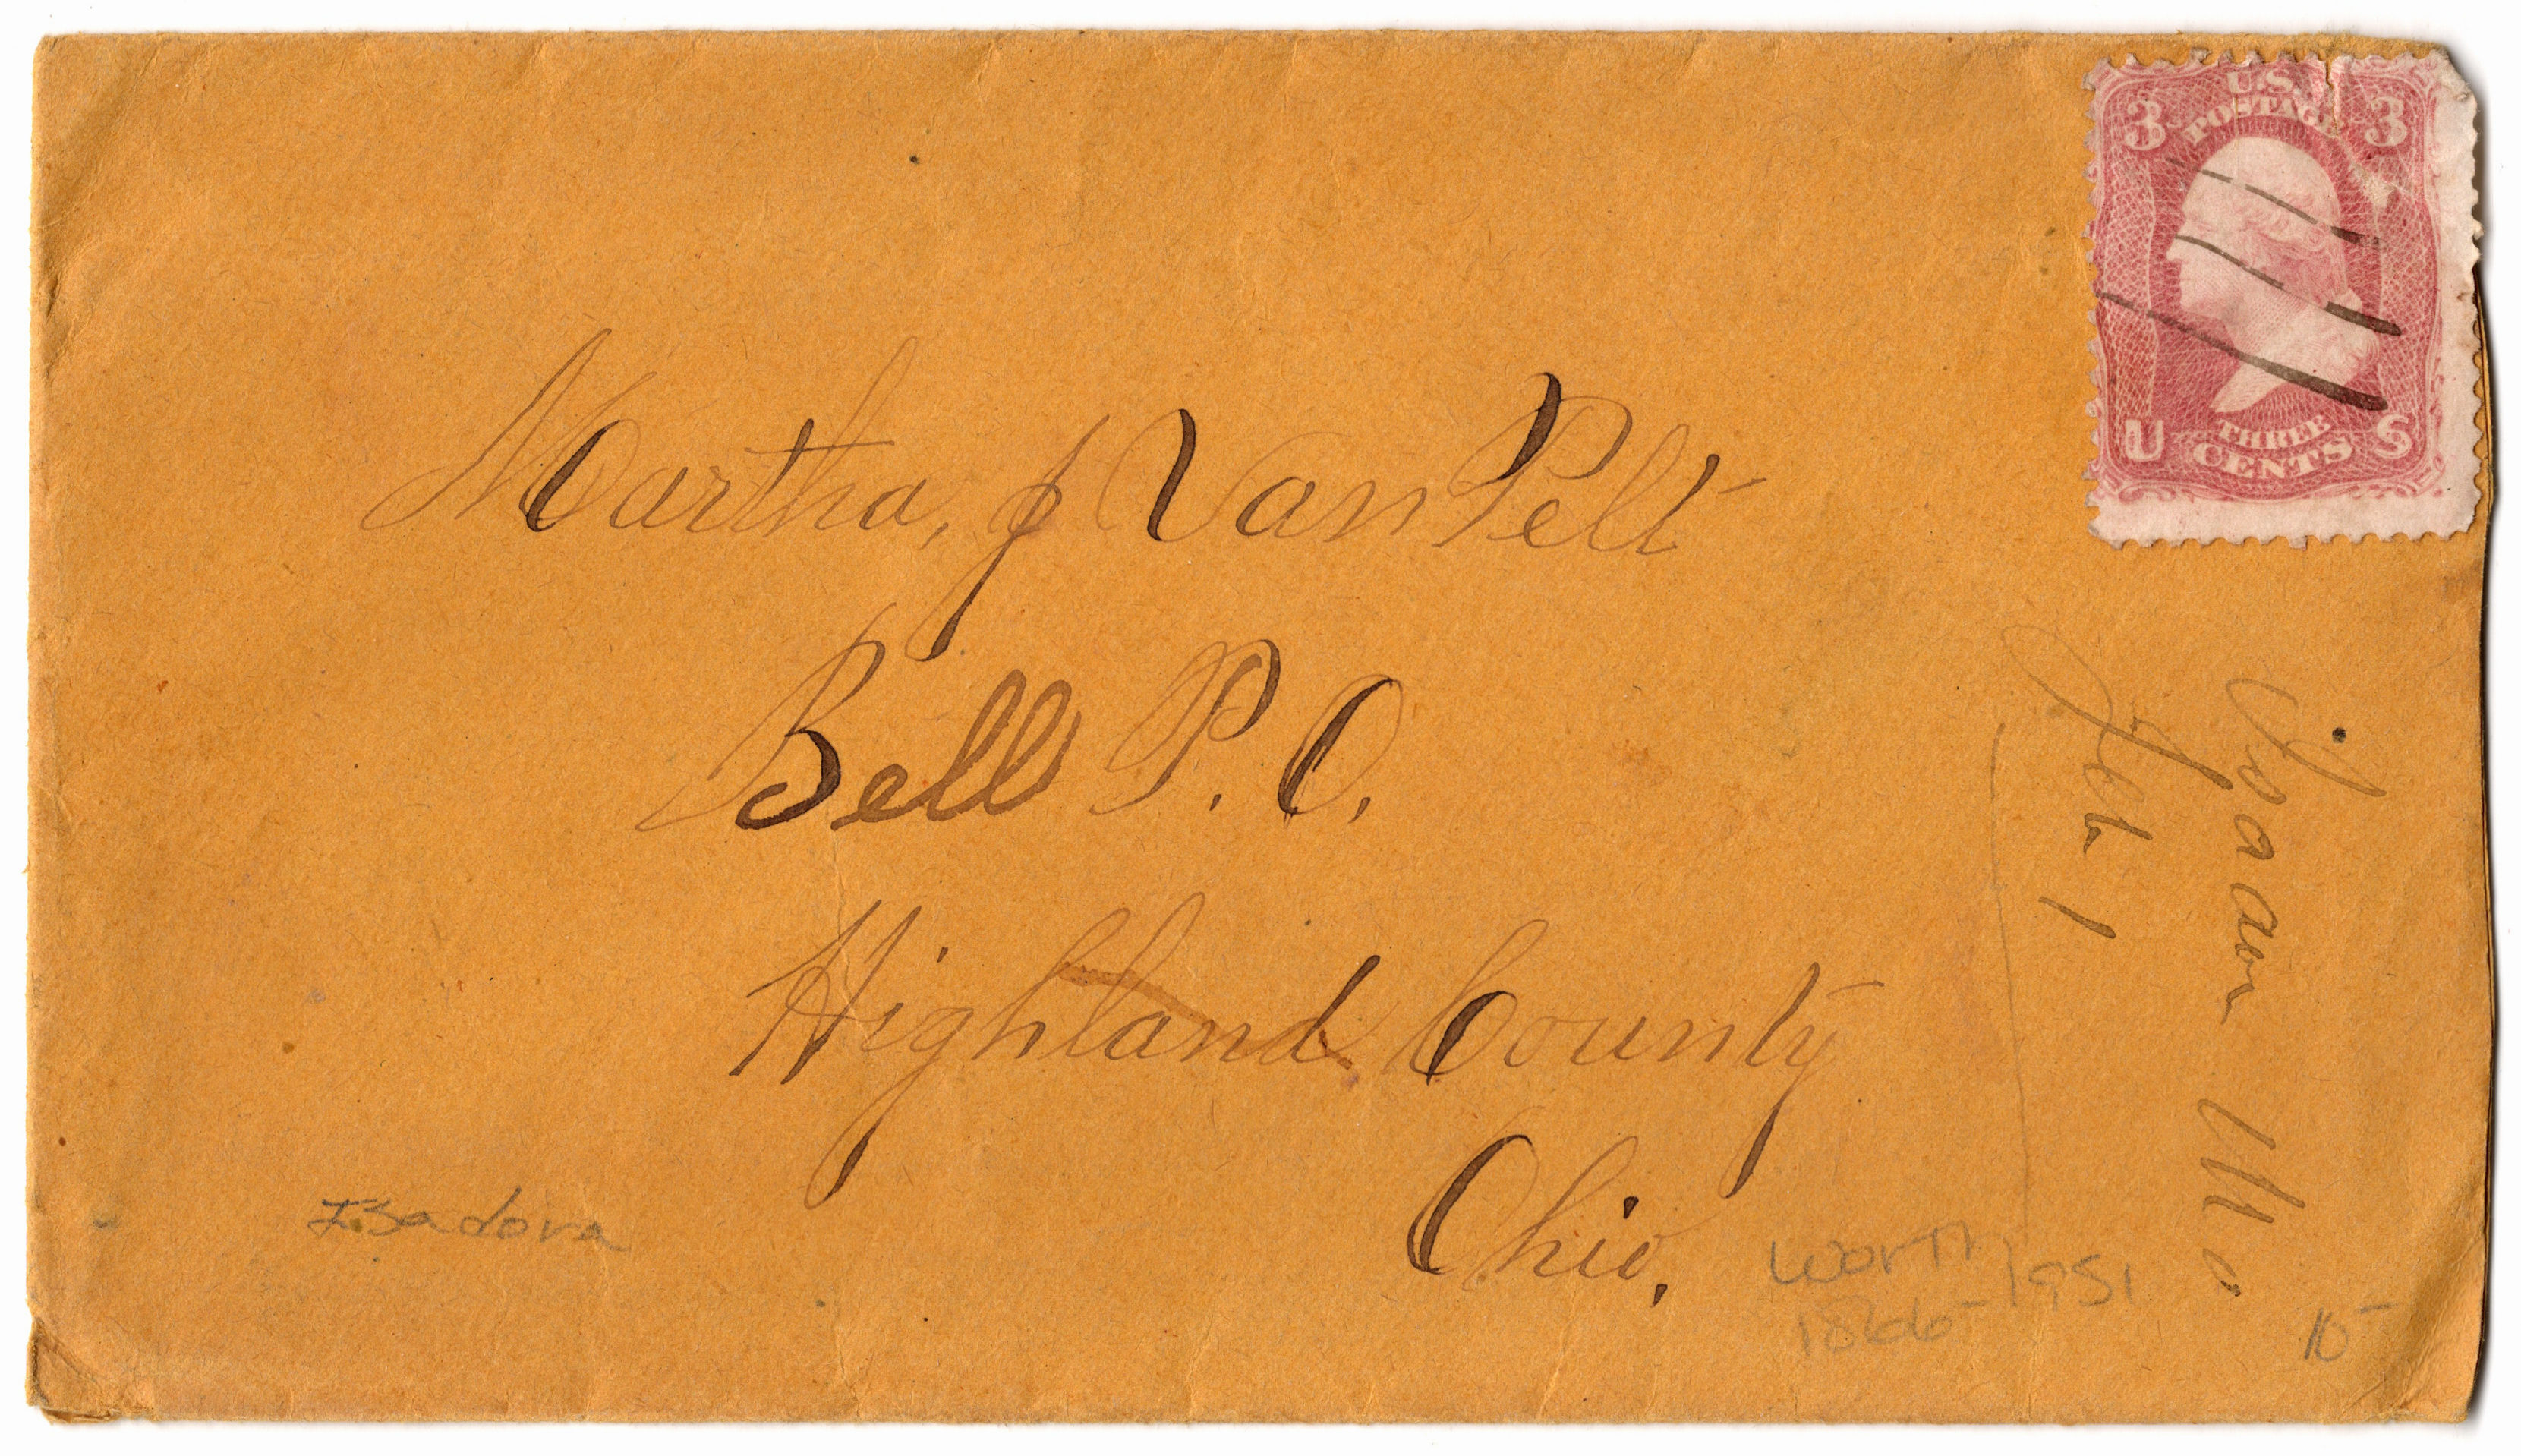 U.S.
POSTAGE
3 3
THREE
CENTS
U S
Martha, J Van Pelt
Bell P. O.
Highland County
Ohio,
Feb 1
Mo
Isadora
Worth
1951
10-